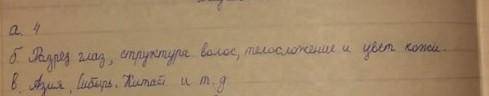 а. 4
б. Разрез глаз, структура волос, телосложение и цвет кожи.
в. Азия, Сибирь, Китай и т.д.